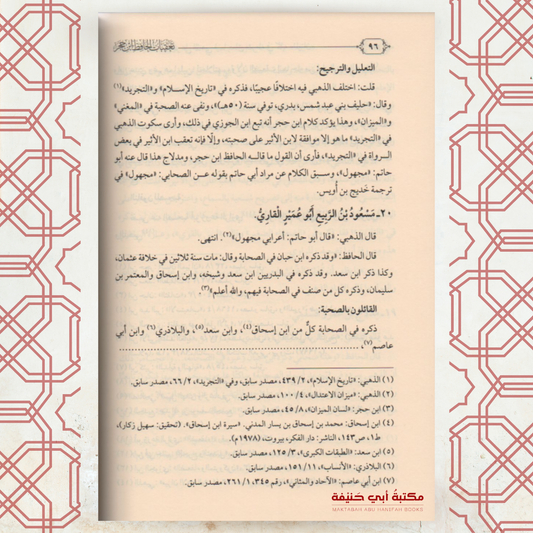 ٩٦
تعقبات الحافظ ابن حجر
التعليل والترجيح:
قلت: اختلف الذهبي فيه اختلافًا عجيبًا، فذكره في «تاريخ الإسلام» و«التجريد»(١)
وقال: «حليف بني عبد شمس، بدري، توفي سنة (٥٠هـ)»، ونفى عنه الصحبة في «المغني»
و«الميزان»، وهذا يؤكد كلام ابن حجر أنه تبع ابن الجوزي في ذلك، وأرى سكوت الذهبي
في «التجريد» ما هو إلا موافقة لابن الأثير على صحبته، وإلَّا فإنه تعقب ابن الأثير في بعض
الرواة في «التجريد»، فأرى أن القول ما قاله الحافظ ابن حجر، ومدلاج هذا قال عنه أبو
حاتم: «مجهول»، وسبق الكلام عن مراد أبي حاتم بقوله عن الصحابي: «مجهول» في
ترجمة خديج بن أويس.
٢٠- مَسْعُودُ بْنُ الرَّبِيعِ أَبُو عُمَيْرٍ الْقَارِيُّ.
قال الذهبي: «قال أبو حاتم: أعرابي مجهول»(٢). انتهى.
قال الحافظ: «وقد ذكره ابن حبان في الصحابة وقال: مات سنة ثلاثين في خلافة عثمان،
وكذا ذكر ابن سعد. وقد ذكره في البدريين ابن سعد وشيخه، وابن إسحاق والمعتمر بن
سليمان، وذكره كل من صنف في الصحابة فيهم، والله أعلم»(٣).
القائلون بالصحبة:
ذكره في الصحابة كلٌّ من ابن إسحاق(٤)، وابن سعد(٥)، والبلاذري(٦) وابن أبي
عاصم(٧)، ........................................
(١) الذهبي: «تاريخ الإسلام»، ٢/ ٤٣٩، مصدر سابق، وفي «التجريد»، ٢/ ٦٦، مصدر سابق.
(٢) الذهبي: «ميزان الاعتدال»، ٤/ ١٠٠، مصدر سابق.
(٣) ابن حجر: «لسان الميزان»، ٨/ ٤٥، مصدر سابق.
(٤) ابن إسحاق: محمد بن إسحاق بن يسار المدني. «سيرة ابن إسحاق». (تحقيق: سهيل زكار)،
ط١، ص١٤٣، الناشر: دار الفكر، بيروت، (١٩٧٨م).
(٥) ابن سعد: «الطبقات الكبرى»، ٣/ ١٢٥، مصدر سابق.
(٦) البلاذري: «الأنساب»، ١١/ ١٥١، مصدر سابق.
(٧) ابن أبي عاصم: «الآحاد والمثاني»، رقم ٣٤٥، ١/ ٢٦١، مصدر سابق.
مكتبة أبي حنيفة
MAKTABAH ABU HANIFAH BOOKS